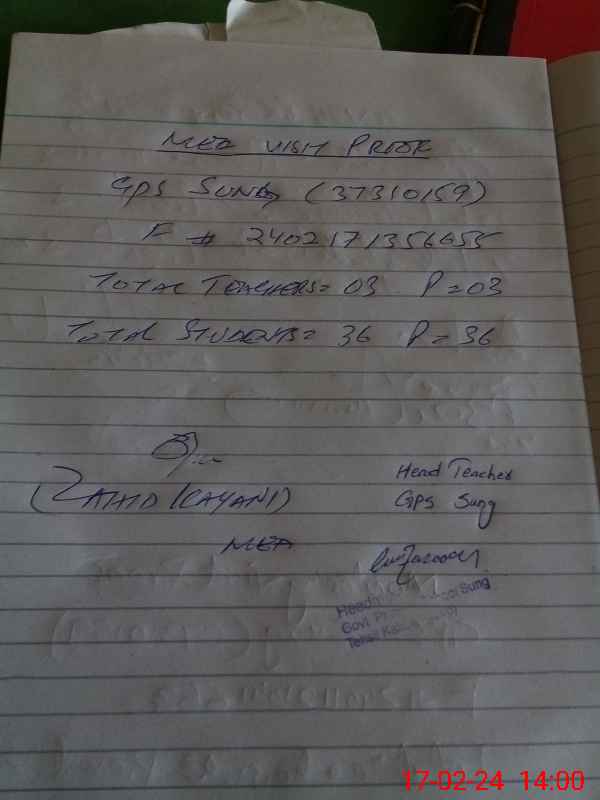 MEA VISIT PROOF
GPS SUNG (37310159)
F # 2402171356655
TOTAL TEACHERS = 03 P = 03
TOTAL STUDENTS = 36 P = 36
(ZAHID KAYANI)
MEA
Head Teacher
GPS Sung
Sung
Govt
17-02-24 14:00